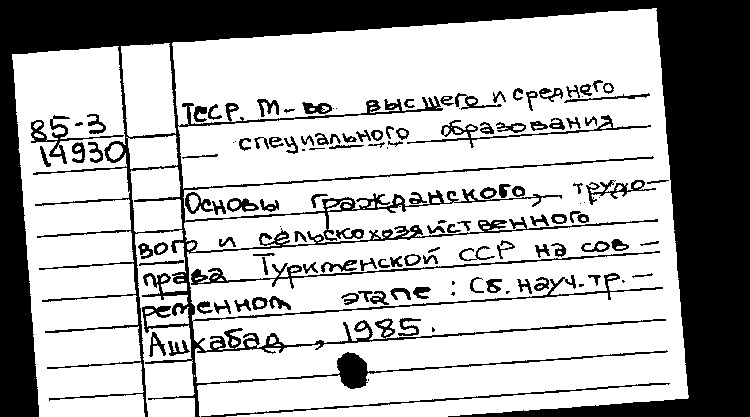 85-3
14930
ТССР. М-во высшего и среднего
специального образования
Основы гражданского, трудо-
вого и сельскохозяйственного
права Туркменской ССР на сов-
ременном этапе : Сб. науч. тр. -
Ашхабад, 1985.